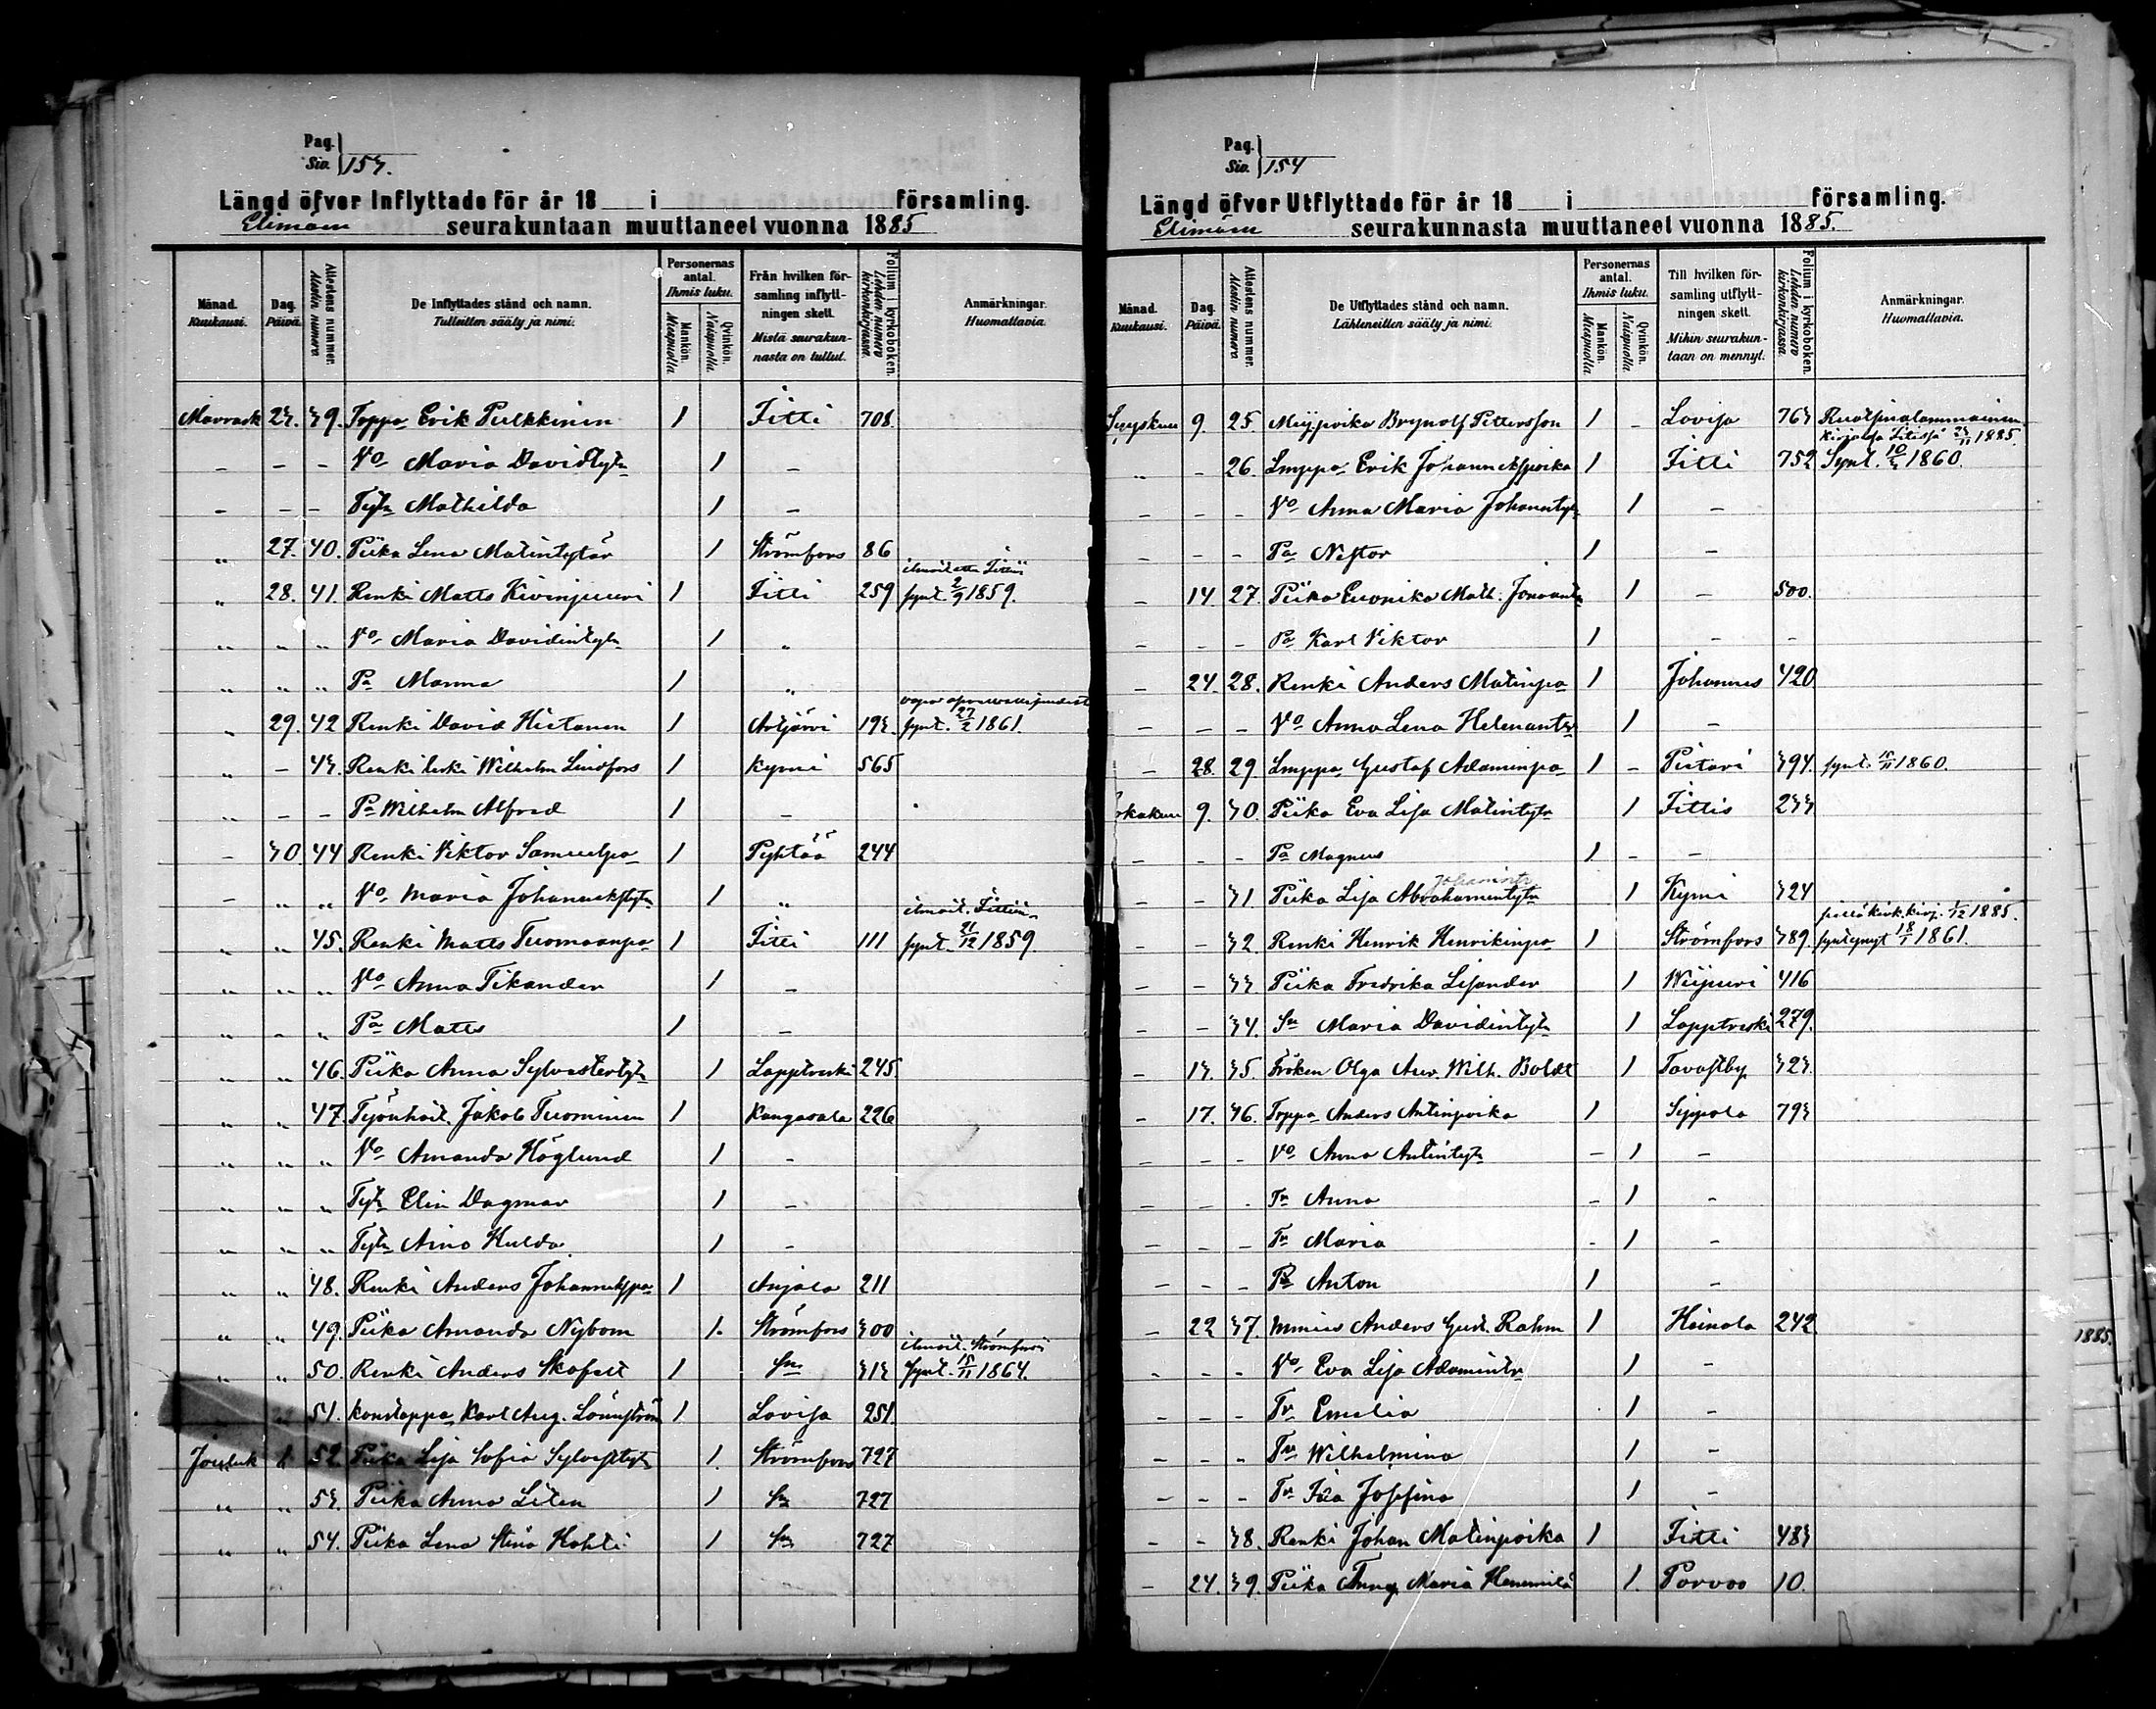 Pag.
Siv. 153.
Längd öfver Inflyttade för år 18 i församling.
Elimäen seurakuntaan muuttaneet vuonna 1885
Månad. Kuukausi. Dag. Päivä. Attestens nummer. Atestin numero De Inflyttades stånd och namn. Tulleitten sääty ja nimi. Personernas antal. Ihmis luku. Mankön. Miespuolia. Qvinkön. Naispuolia. Från hvilken församling inflyttningen skett. Mistä seurakunnasta on tullut. Folium i kyrkoboken. Lehden numero kirkonkirjassa. Anmärkningar. Huomattavia.
Marrask 23. 39. Torppa Erik Pulkkinen 1 Iitti 708
– – – Vo Maria Davidtytr 1 –
– – – Tytr Mathilda 1 –
„ 27. 40. Piika Lena Matintytär 1 Strömfors 86
„ 28. 41. Renki Matts Kivinjuuri 1 Iitti 259 synt. 2/9 1859.
„ „ „ Vo Maria Davidintytr 1 „
„ „ „ Pa Manne 1 „
„ 29. 42 Renki David Hietanen 1 Artjärvi 193. synt. 27/2 1861.
„ – 43. Renki leski Wilhelm Lindfors 1 Kymi 565
„ – – Pa Wilhelm Alfred 1 –
– 30 44 Renki Viktor Samuelpo 1 Pyhtää 244
– „ „ Vo Maria Johannekstytr 1 „
„ „ 45. Renki Matts Tuomaanpo 1 Iitti 111 synt. 21/12 1859.
„ „ „ Vo Anna Tikander 1 –
„ – „ Pa Matts 1 –
„ „ 46. Piika Anna Sylvestertytr 1 Lapptreski 245
„ „ 47. Työnhoit. Jakob Tuominen 1 Kangasala 226
„ „ „ Vo Amanda Höglund 1 –
„ „ „ Tytr Elin Dagmar 1 –
„ „ „ Tytr Aino Hulda 1 –
„ „ 48. Renki Anders Johannekspo 1 Anjala 211
„ „ 49. Piika Amanda Nybom 1. Strömfors 300
„ „ 50. Renki Anders Skofelt 1 Sm 313 synt. 15/11 1864.
51. Karl Aug. Lönnström 1 Lovisa 251
Jouluk 1 52 Piika Lisa Sofia Sylvesttytr 1. Strömfors 727
„ „ 53. Piika Anna Liten 1 Sm 727
„ „ 54. Piika Lena Stina Kohti 1 Sm 727
Pag.
Siv. 154
Längd öfver Utflyttade för år 18 i församling.
Elimäen seurakunnasta muuttaneet vuonna 1885.
Månad. Kuukausi. Dag. Päivä. Attestens nummer. Atestin numero De Utflyttades stånd och namn. Lähteneitten sääty ja nimi. Personernas antal. Ihmis luku. Mankön. Miespuolia. Qvinkön. Naispuolia. Till hvilken församling utflyttningen skett. Mihin seurakuntaan on mennyt. Folium i kyrkoboken. Lehden numero kirkonkirjassa. Anmärkningar. Huomattavia.
Syyskuu 9. 25 Brynolf Pettersson 1 – Lovisa 763 Ruotsinalammainen
1885.
„ – 26. Lmppo Erik Johannekspoika 1 Iitti 752 Synt. 10/3 1860.
– – – Vo Anna Maria Johanntytr 1 –
– – – Pa Nestor 1 –
– 14. 27. Piika Euonika Math. 1 – 500.
– – – Pa Karl Viktor 1 – –
– 24. 28. Renki Anders Matinpo 1 Johannes 420
– – – Vo Anna Lena Helenantr 1 –
– 28. 29 Lmppo Gustaf Adaminpo 1 – Pistari 394. synt. 15/11 1860.
Lokakuu 9. 30. Piika Eva Lisa Matintytr 1 Iittis 233
– – – Pa Magnus 1 – –
Johanintr
– – 31. Piika Lisa Abrahamintytr 1 Kymi 324
1/12 1885.
– – 32. Renki Henrik Henrikinpo 1 Strömfors 389. syntynyt 18/1 1861.
– – 33 Piika Fredrika Lisander 1 Wiipuri 416
– – 34. Sm Maria Davidintytr 1 Lapptreski 279.
– 13. 35. Fröken Olga Aur. Wilh. Boldt 1 Tavastby 323.
– 17. 36. Torppo Anders Antinpoika 1 Sippola 793
– – – Vo Anna Antintytr – 1 –
– – – Tr Anna – 1 –
– – – Tr Maria – 1 –
– – – Pa Anton 1 –
– 22 37. Anders Gust. Rahm 1 Heinola 242
– – – Vo Eva Lisa Adamintr 1 –
– – – Tr Emelia 1 –
– – – Tr Wilhelmina 1 –
– – – Tr Ida Josefina 1 –
– – 38. Renki Johan Matinpoika 1 Iitti 483
– 24. 39. Piika Maria Hememilä 1. Porvoo 10.
1885.